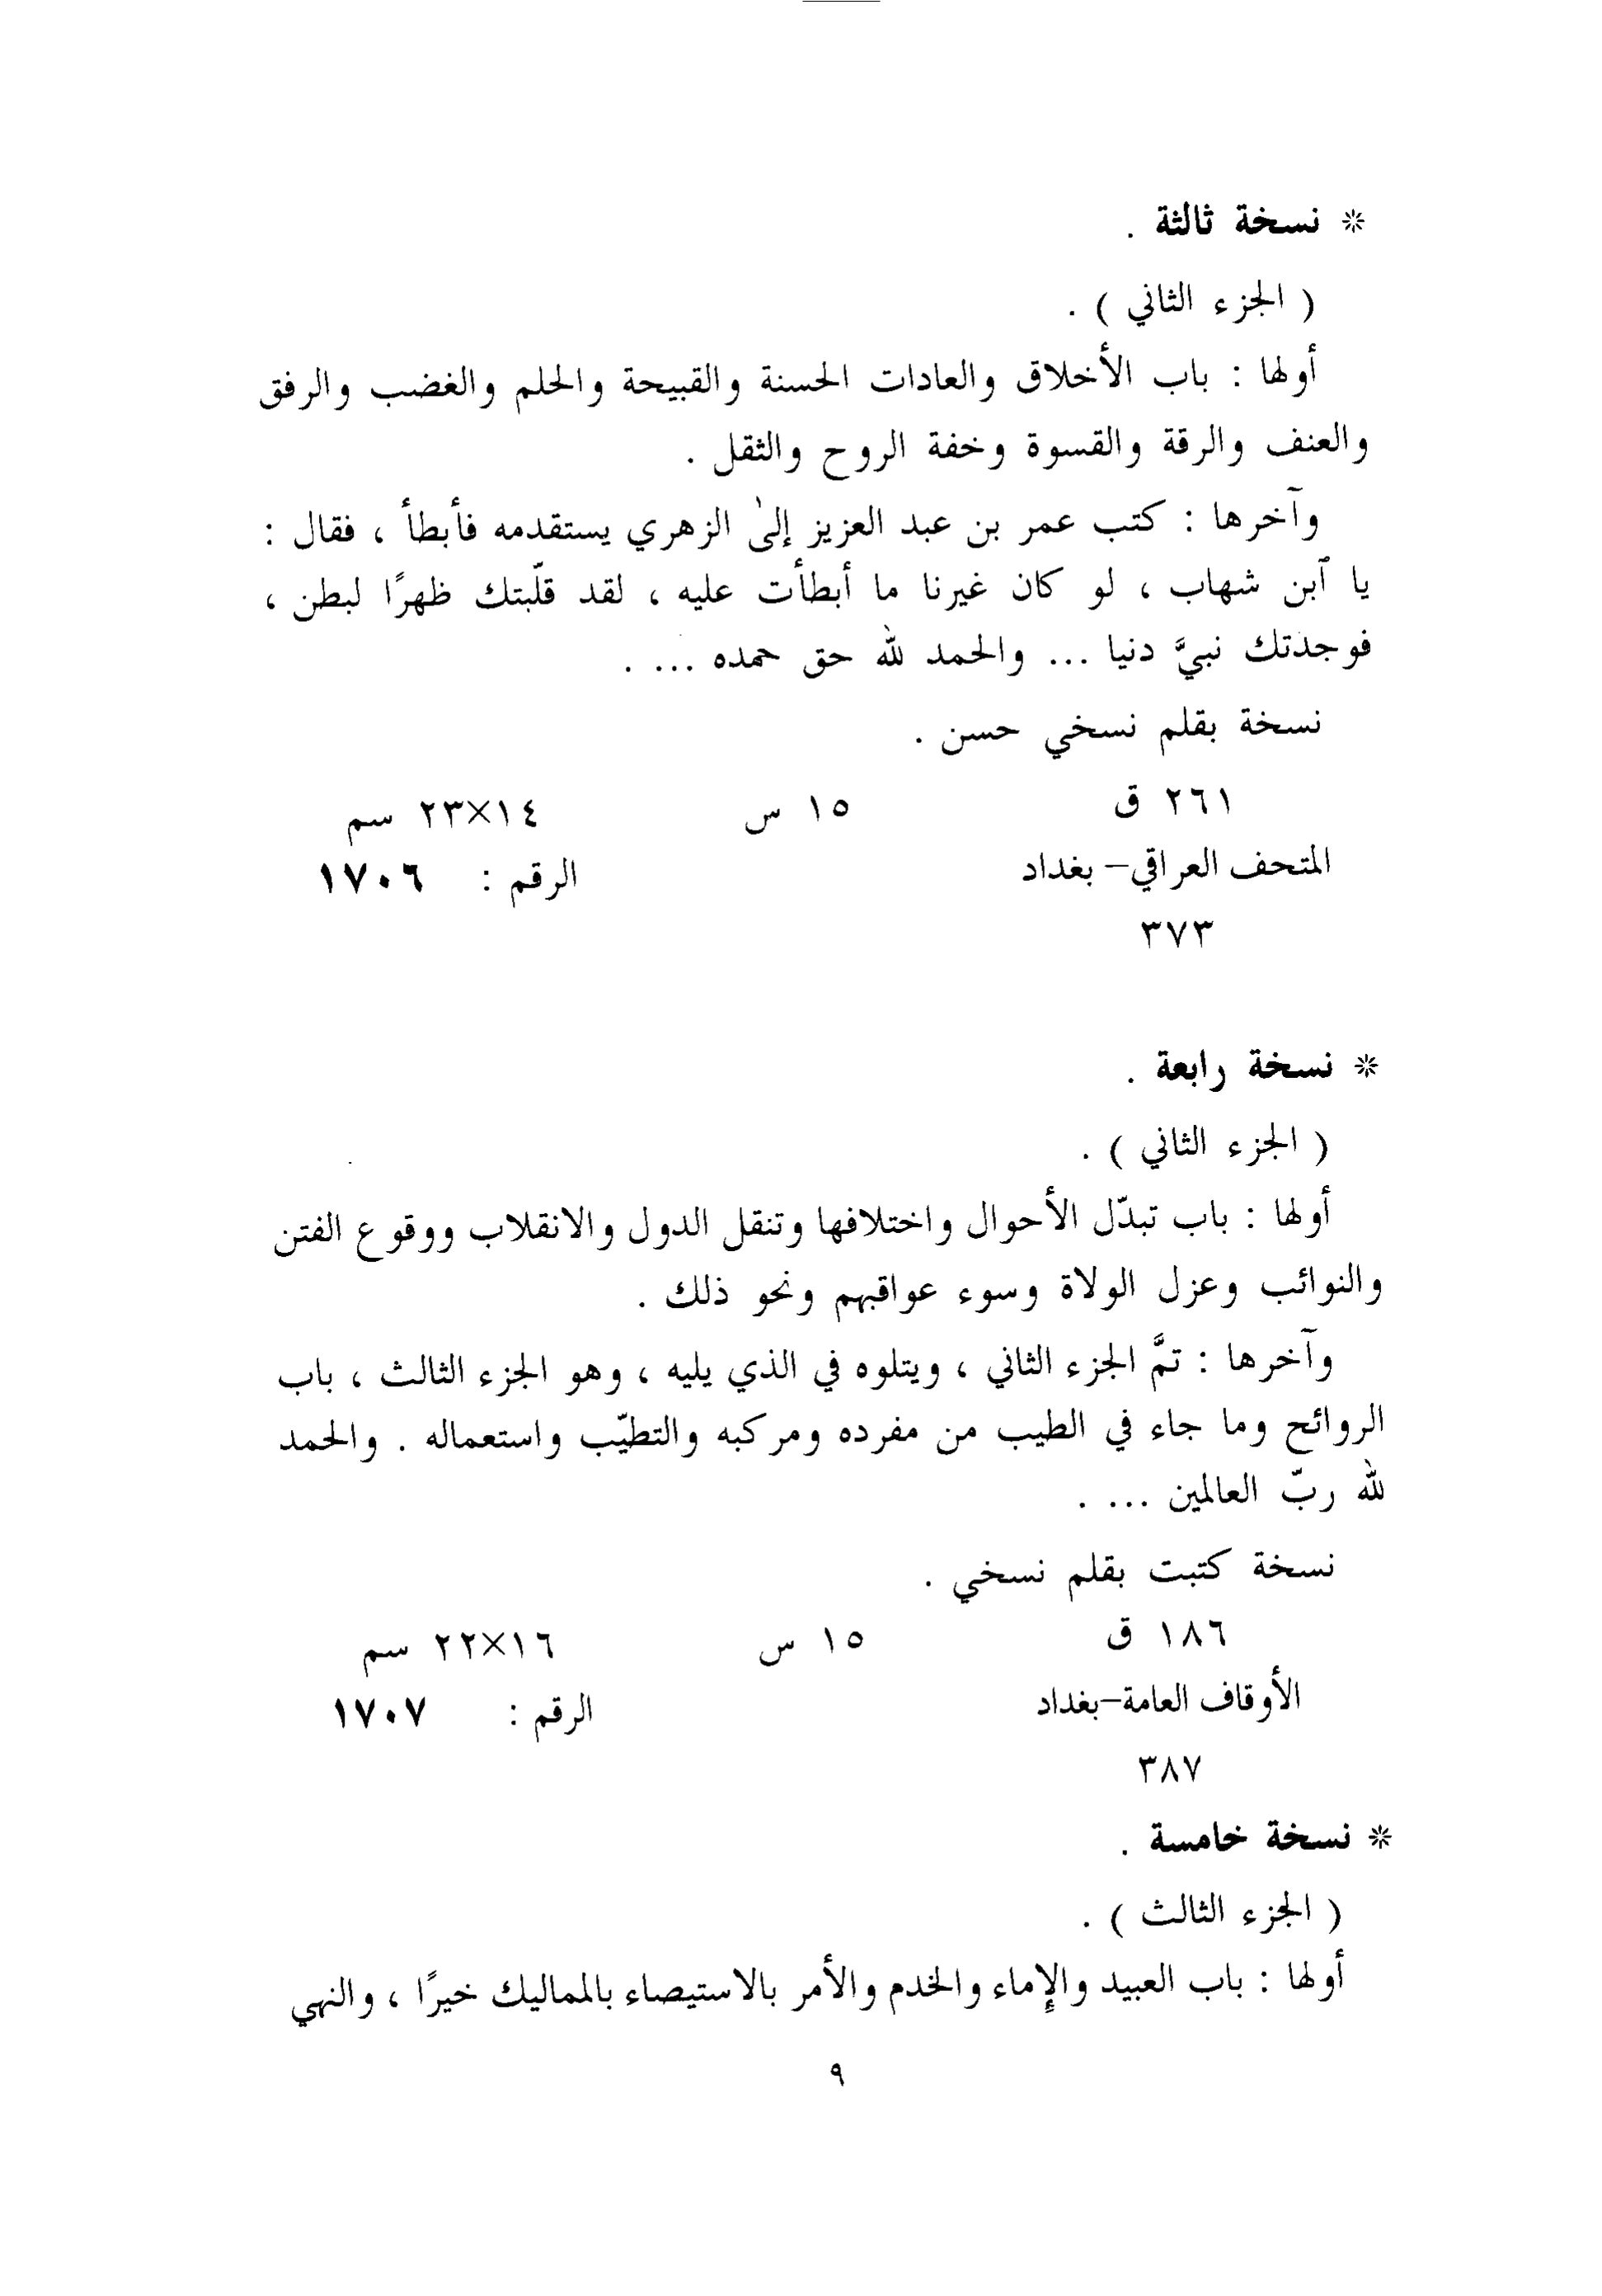 * نسخة ثالثة .
( الجزء الثاني ) .
أولها : باب الأخلاق والعادات الحسنة والقبيحة والحلم والغضب والرفق
والعنف والرقة والقسوة وخفة الروح والثقل .
وآخرها : كتب عمر بن عبد العزيز إلىٰ الزهري يستقدمه فأبطأ ، فقال :
يا ٱبن شهاب ، لو كان غيرنا ما أبطأت عليه ، لقد قلّبتك ظهرًا لبطن ،
فوجدتك نبيَّ دنيا ... والحمد لله حق حمده ... .
نسخة بقلم نسخي حسن .
٢٦١ ق ١٥ س ١٤×٢٣ سم
المتحف العراقي– بغداد الرقم : ١٧٠٦
٣٧٣
* نسخة رابعة .
( الجزء الثاني ) .
أولها : باب تبدّل الأحوال واختلافها وتنقل الدول والانقلاب ووقوع الفتن
والنوائب وعزل الولاة وسوء عواقبهم ونحو ذلك .
وآخرها : تمَّ الجزء الثاني ، ويتلوه في الذي يليه ، وهو الجزء الثالث ، باب
الروائح وما جاء في الطيب من مفرده ومركبه والتطيّب واستعماله . والحمد
لله ربّ العالمين ... .
نسخة كتبت بقلم نسخي .
١٨٦ ق ١٥ س ١٦×٢٢ سم
الأوقاف العامة–بغداد الرقم : ١٧٠٧
٣٨٧
* نسخة خامسة .
( الجزء الثالث ) .
أولها : باب العبيد والإماء والخدم والأمر بالاستيصاء بالمماليك خيرًا ، والنهي
٩